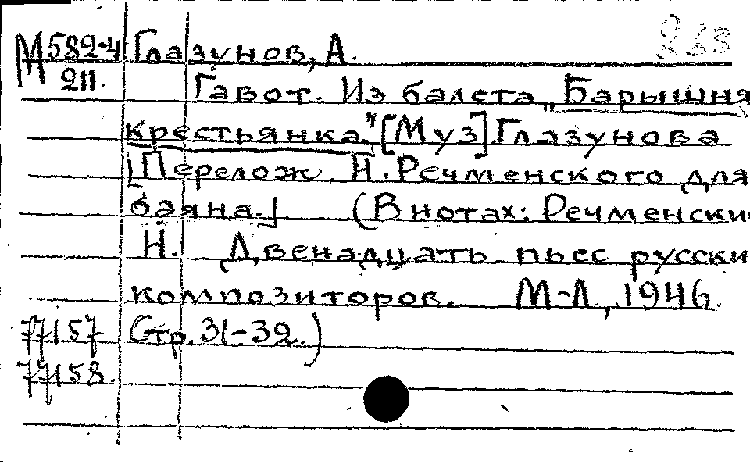 М582-4 Глазунов, А.
211. Гавот. Из балета „Барышня
крестьянка" [Муз] Глазунова
[Перелож. Н. Речменского для
баяна.] (В нотах: Речменски
Н. Двенадцать пьес русски
композиторов. М-Л, 1946.
77157 Стр. 31-32.)
77158.